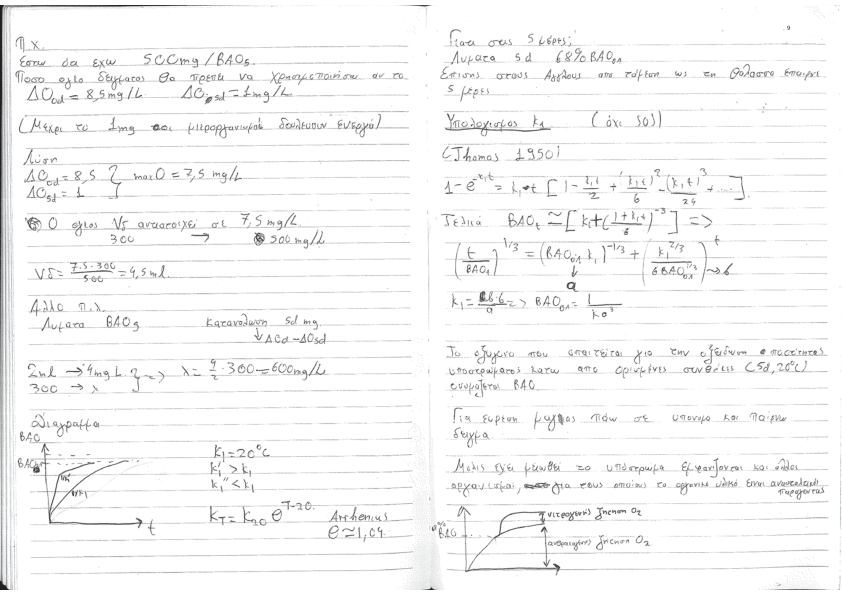 Π.χ.
Εστω οτι εχω 500mg/BAO5.
Ποσο ογκο δειγματος θα πρεπει να χρησιμοποιησω αν το
ΔΟod = 8,5mg/L ΔΟ5d = 1mg/L
(Μεχρι το 1mg οι μικροργανισμοι δουλευουν ενεργα)
Λυση
ΔΟod = 8,5 } max O = 7,5 mg/L
ΔΟ5d = 1
Ο ογκος Vδ αντιστοιχει σε 7,5mg/L.
300 → 500mg/L
Vδ = 7.5·300/500 = 4,5ml.
Αλλο π.χ.
Λυματα BAO5 καταναλωση 5d mg.
↓ ΔΟd-ΔΟ5d
2ml → 4mg L } => λ = 4/2 · 300 = 600mg/L
300 → λ
Διαγραμμα
BAO
BAO
K1
t
K1 = 20°C
K1' > K1
K1'' < K1
KT = K20 θ^T-20.
Arrhenius
θ ≃ 1,04.
Γιατι στις 5 μερες;
Λυματα 5d 68% BAOολ
Επισης στους Αγγλους απο ταμεση ως τη θαλασσα επαιρνε
5 μερες
Υπολογισμος K1 (οχι SOS)
(Thomas 1950)
1-e^-K1t = K1·t [1 - K1t/2 + (K1t)^2/6 - (K1t)^3/24 + ....].
Τελικα BAOt ≃ [K1t(1+K1t/6)^-3] =>
(t/BAOt)^1/3 = (BAOολ K1)^-1/3 + (K1^2/3 / 6BAOολ^1/3) t → b
↓
a
K1 = 6·b/a => BAOολ = 1/Ka^3
Το οξυγονο που απαιτειται για την οξειδωση ποσοτητας
υποστρωματος κατω απο ορισμενες συνθηκες (5d, 20°C)
ονομαζεται BAO.
Για ευρεση μαγιας παω σε υπονομο και παιρνω
δειγμα
Μολις εχει μειωθει το υποστρωμα εμφανιζονται και αλλοι
οργανισμοι, για τους οποιους το οργανικο υλικο ειναι ανασταλτικος
παραγοντας
BAO
νιτρογενης ζητηση O2
ανθρακογενης ζητηση O2